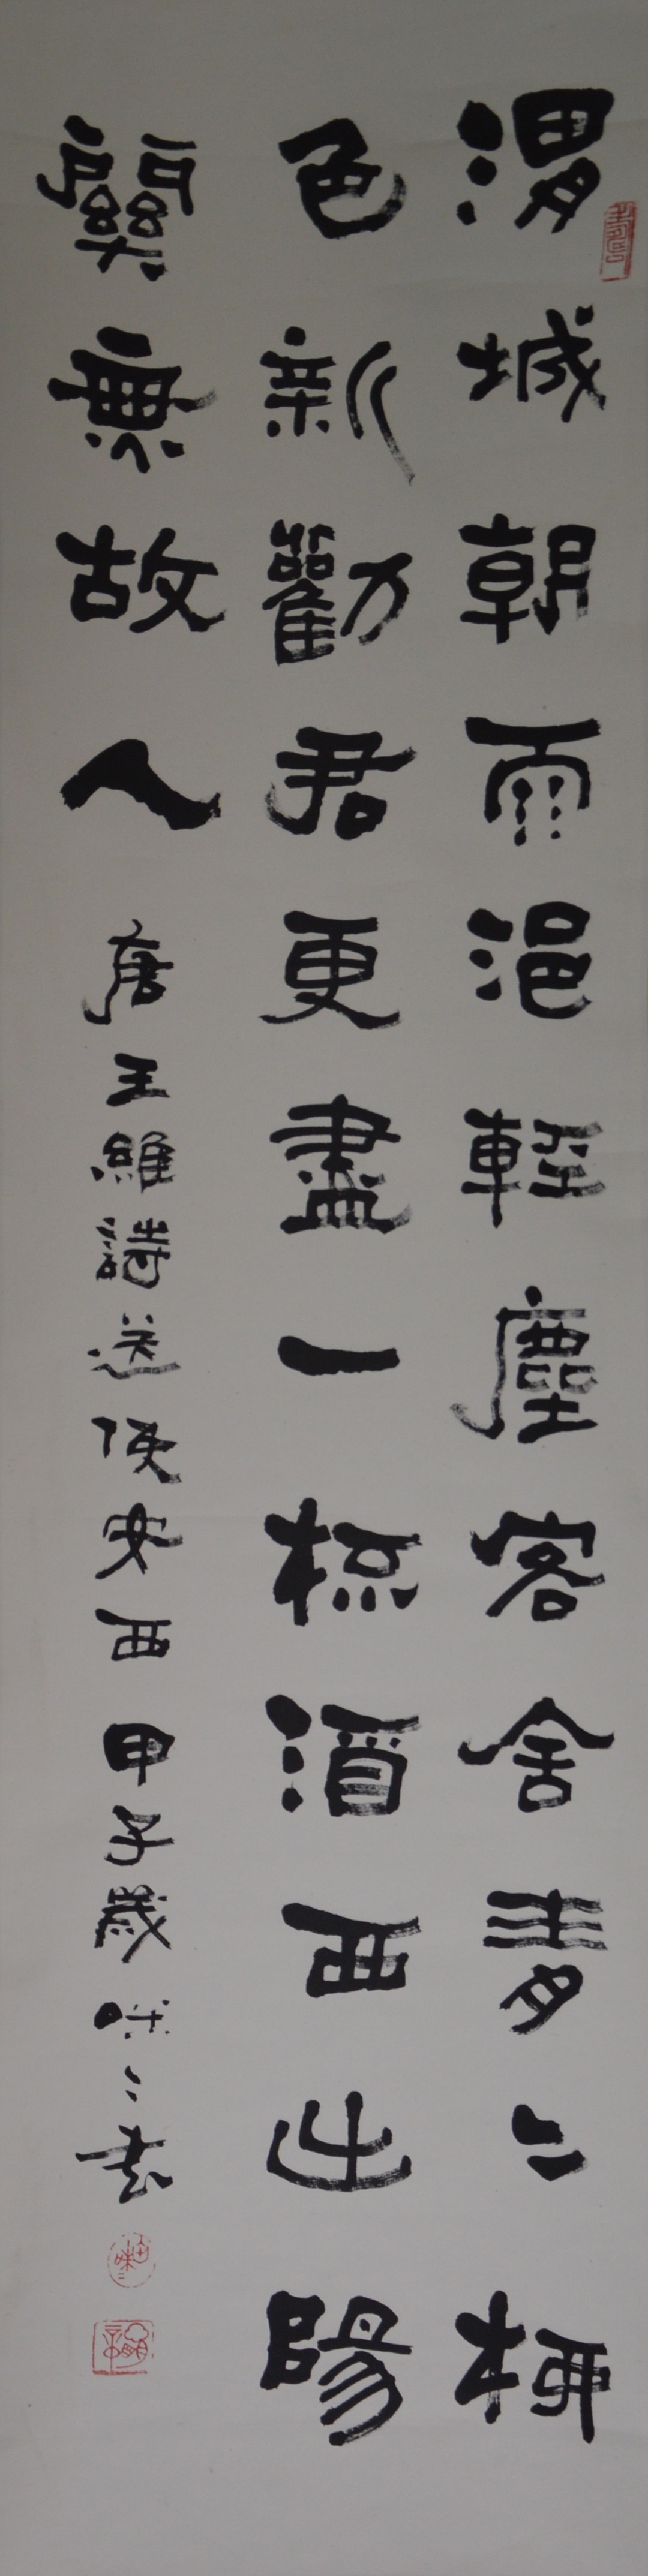 渭城朝雨浥輕塵客舍青〻柳
色新勸君更盡一杯酒西出陽
關無故人
唐王維詩送使安西甲子歲味〻書